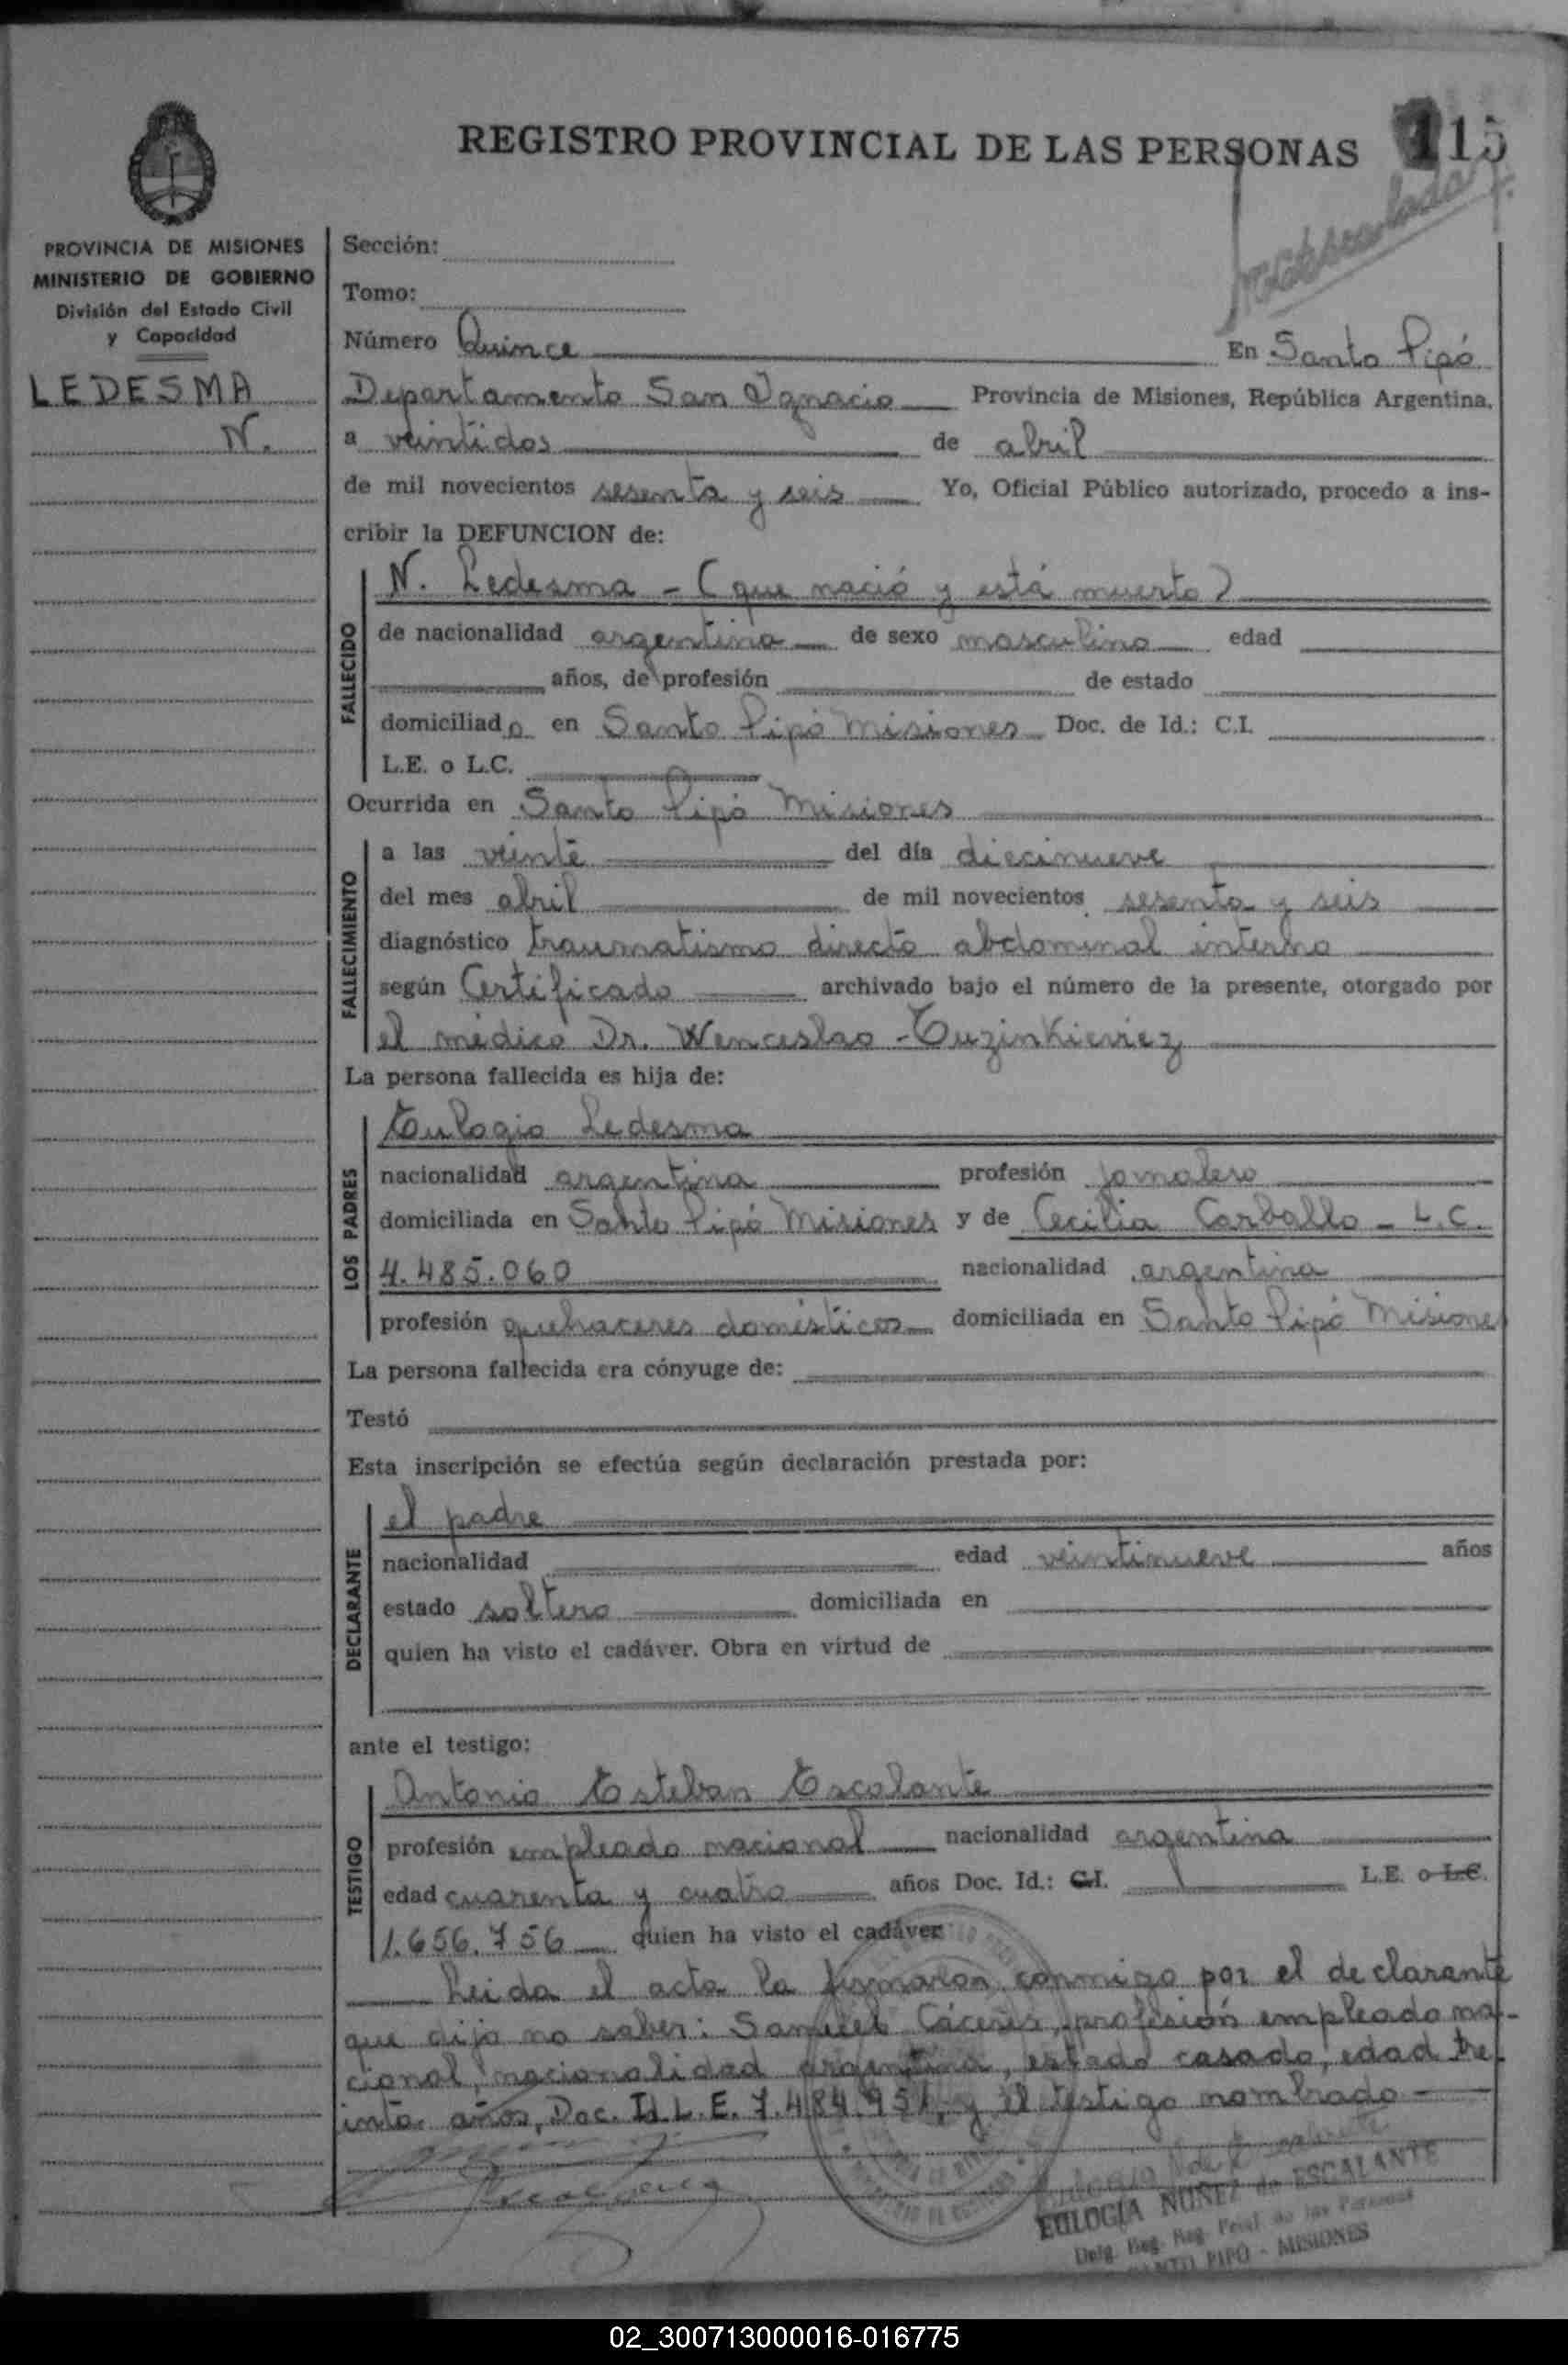 REGISTRO PROVINCIAL DE LAS PERSONAS 115
PROVINCIA DE MISIONES
MINISTERIO DE GOBIERNO
División del Estado Civil
y Capacidad
LEDESMA
N.
Sección:
Tomo:
Número Quince En Santo Pipó
Departamento San Ignacio Provincia de Misiones, República Argentina,
a veintidos de abril
de mil novecientos sesenta y seis Yo, Oficial Público autorizado, procedo a ins-
cribir la DEFUNCION de:
FALLECIDO
N. Ledesma - (que nació y está muerto)
de nacionalidad argentina de sexo masculino edad
años, de profesión de estado
domiciliado en Santo Pipó Misiones Doc. de Id.: C.I.
L.E. o L.C.
Ocurrida en Santo Pipó Misiones
FALLECIMIENTO
a las veinte del día diecinueve
del mes abril de mil novecientos sesenta y seis
diagnóstico traumatismo directo abdominal interno
según Certificado archivado bajo el número de la presente, otorgado por
el médico Dr. Wenceslao
La persona fallecida es hija de:
LOS PADRES
Eulogio Ledesma
nacionalidad argentina profesión jornalero
domiciliada en Santo Pipó Misiones y de Cecilia Carballo - L.C.
4.485.060 nacionalidad argentina
profesión quehaceres domésticos domiciliada en Santo Pipó Misiones
La persona fallecida era cónyuge de:
Testó
Esta inscripción se efectúa según declaración prestada por:
DECLARANTE
el padre
nacionalidad edad veintinueve años
estado soltero domiciliada en
quien ha visto el cadáver. Obra en virtud de
ante el testigo:
TESTIGO
Antonio Esteban Escalante
profesión empleado nacional nacionalidad argentina
edad cuarenta y cuatro años Doc. Id.: C.I. L.E. o L.C.
1.656.756 quien ha visto el cadáver
Leida el acta la firmaron conmigo por el declarante
que dijo no saber: Samuel Cáceres, profesión empleado na-
cional, nacionalidad argentina, estado casado, edad tre
inta años, Doc. Id. L.E. 7.484.951, y el testigo nombrado -
EULOGIA NUÑEZ de ESCALANTE
SANTO PIPO - MISIONES
02_300713000016-016775